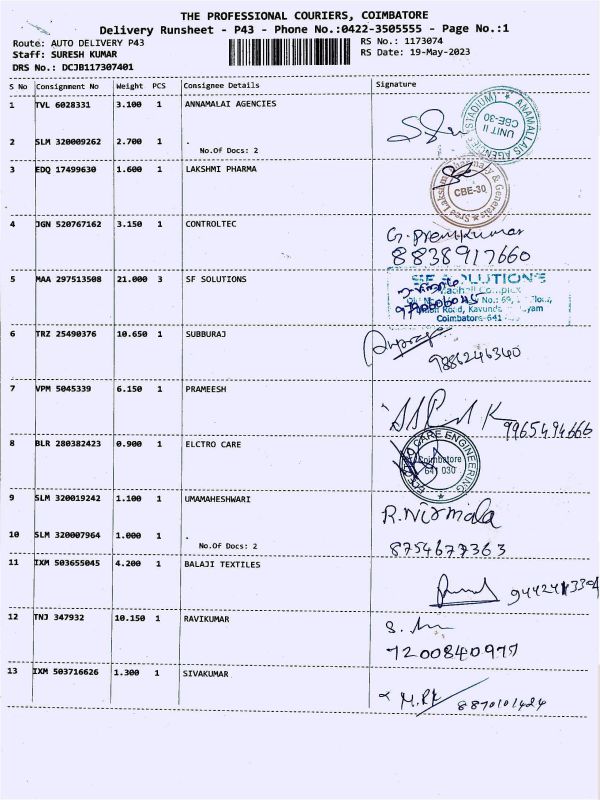 THE PROFESSIONAL COURIERS, COIMBATORE
Delivery Runsheet - P43 - Phone No.:0422-3505555 - Page No.:1
Route: AUTO DELIVERY P43 RS No.: 1173074
Staff: SURESH KUMAR RS Date: 19-May-2023
DRS No.: DCJB117307401
S No Consignment No Weight PCS Consignee Details Signature
1 TVL 6028331 3.100 1 ANNAMALAI AGENCIES
ANAMALLAIS AGENCIES (STADIUM) ★ UNIT II CBE-30
2 SLM 320009262 2.700 1 .
No.Of Docs: 2
3 EDQ 17499630 1.600 1 LAKSHMI PHARMA
CBE-30
4 JGN 520767162 3.150 1 CONTROLTEC
G. Premkumar
8838917660
5 MAA 297513508 21.000 3 SF SOLUTIONS
SF SOLUTIONS
Complex
No.: 69,
Road, Kavunda
Coimbatore-641
6 TRZ 25490376 10.650 1 SUBBURAJ
9886246340
7 VPM 5045339 6.150 1 PRAMEESH
9965494666
8 BLR 280382423 0.900 1 ELCTRO CARE
ELECTRO CARE ENGINEERING ★ Coimbatore 641 030
9 SLM 320019242 1.100 1 UMAMAHESHWARI
R. Nirmala
10 SLM 320007964 1.000 1 .
No.Of Docs: 2
8754677363
11 IXM 503655045 4.200 1 BALAJI TEXTILES
12 TNJ 347932 10.150 1 RAVIKUMAR
7200840977
13 IXM 503716626 1.300 1 SIVAKUMAR
8870101424